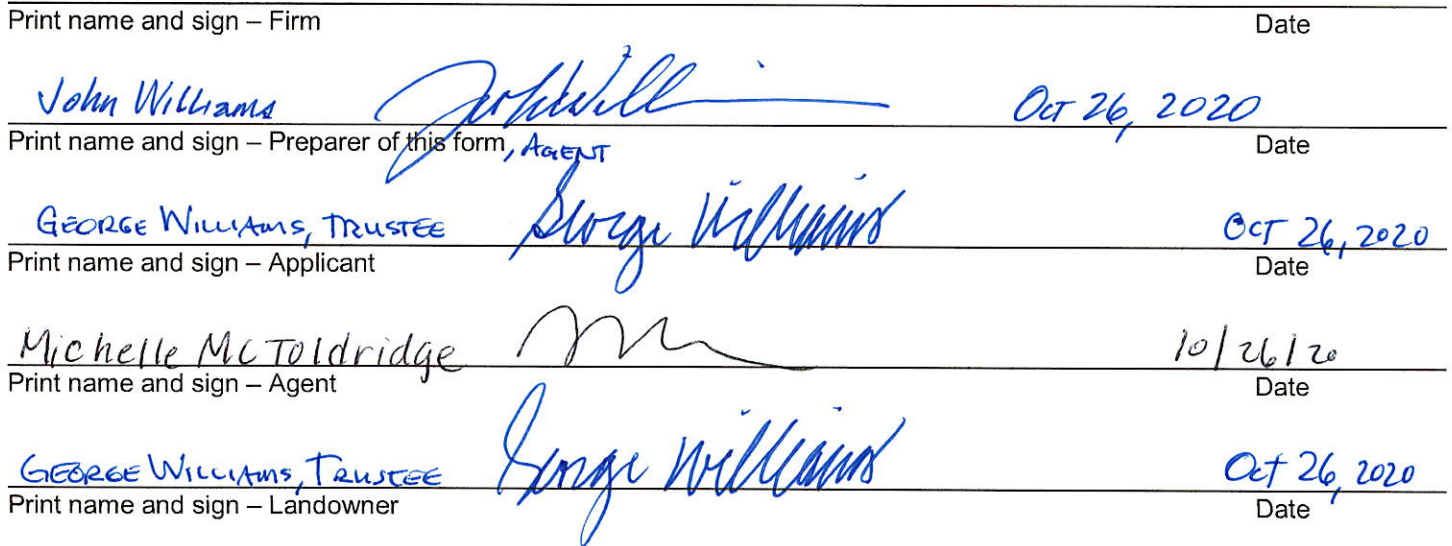 Print name and sign – Firm Date
John Williams John Williams Oct 26, 2020
Print name and sign – Preparer of this form, AGENT Date
GEORGE WILLIAMS, TRUSTEE George Williams OCT 26, 2020
Print name and sign – Applicant Date
Michelle McToldridge 10/26/20
Print name and sign – Agent Date
GEORGE WILLIAMS, TRUSTEE George Williams Oct 26, 2020
Print name and sign – Landowner Date